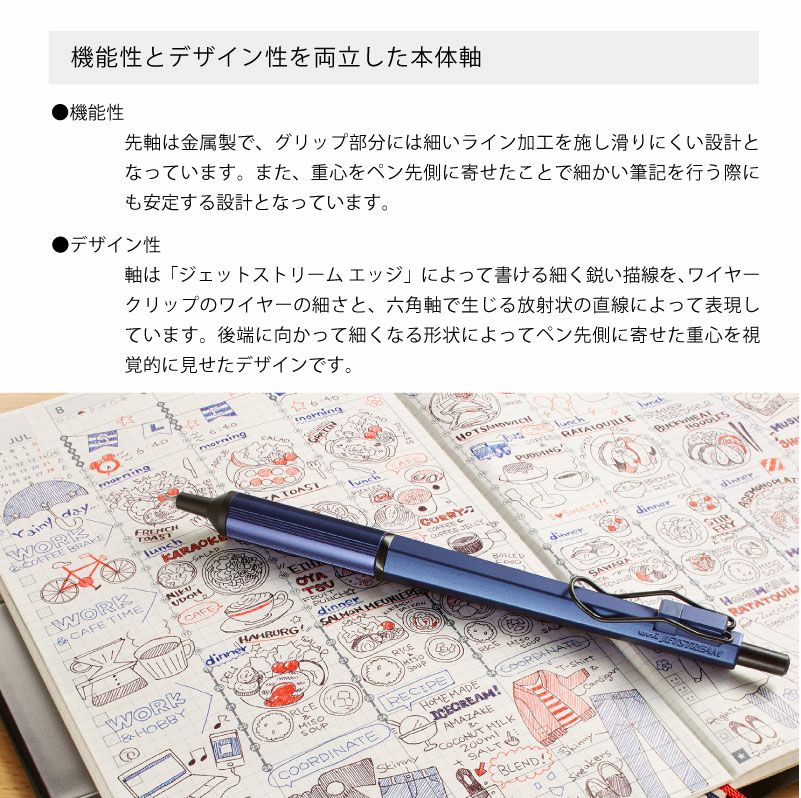 機能性とデザイン性を両立した本体軸
●機能性
先軸は金属製で、グリップ部分には細いライン加工を施し滑りにくい設計と
なっています。また、重心をペン先側に寄せたことで細かい筆記を行う際に
も安定する設計となっています。
●デザイン性
軸は「ジェットストリーム エッジ」によって書ける細く鋭い描線を、ワイヤー
クリップのワイヤーの細さと、六角軸で生じる放射状の直線によって表現し
ています。後端に向かって細くなる形状によってペン先側に寄せた重心を視
覚的に見せたデザインです。
JUL
8
S
L
6:40
6:40
morning
morning
morning
lunch
HOT SANDWICH
lunch
RATATOUILLE
BUCKWHEAT
NOODLES
PUDDING
Rainy day.
WORK
& COFFEE BRAKE
FRENCH
TOAST
CAFE
CURRY
COFFEE &
COFFEE JELLY
I ♡ SWEETS!!
dinner
dinner
STIR
lunch
KARAOKE
NIKU
UDON
OYA
TSU
BOILED
FOOD
WORK
& CAFE TIME
CAFE
dinner
SALMON MEUNIERE
HOMEMADE
RATATOUILLE
HAMBURG!
dinner
RICE
MISO
SOUP
uni JETSTREAM
WORK
& HOBBY
RICE
&
MISO
SOUP
RECIPE
COORDINATE
HOMEMADE
ICECREAM!
AMAZAKE
COCONUT MILK
200ml
+ SALT
T-shirt
Cardigan
COORDINATE
BLEND!
Skinny
Sneakers